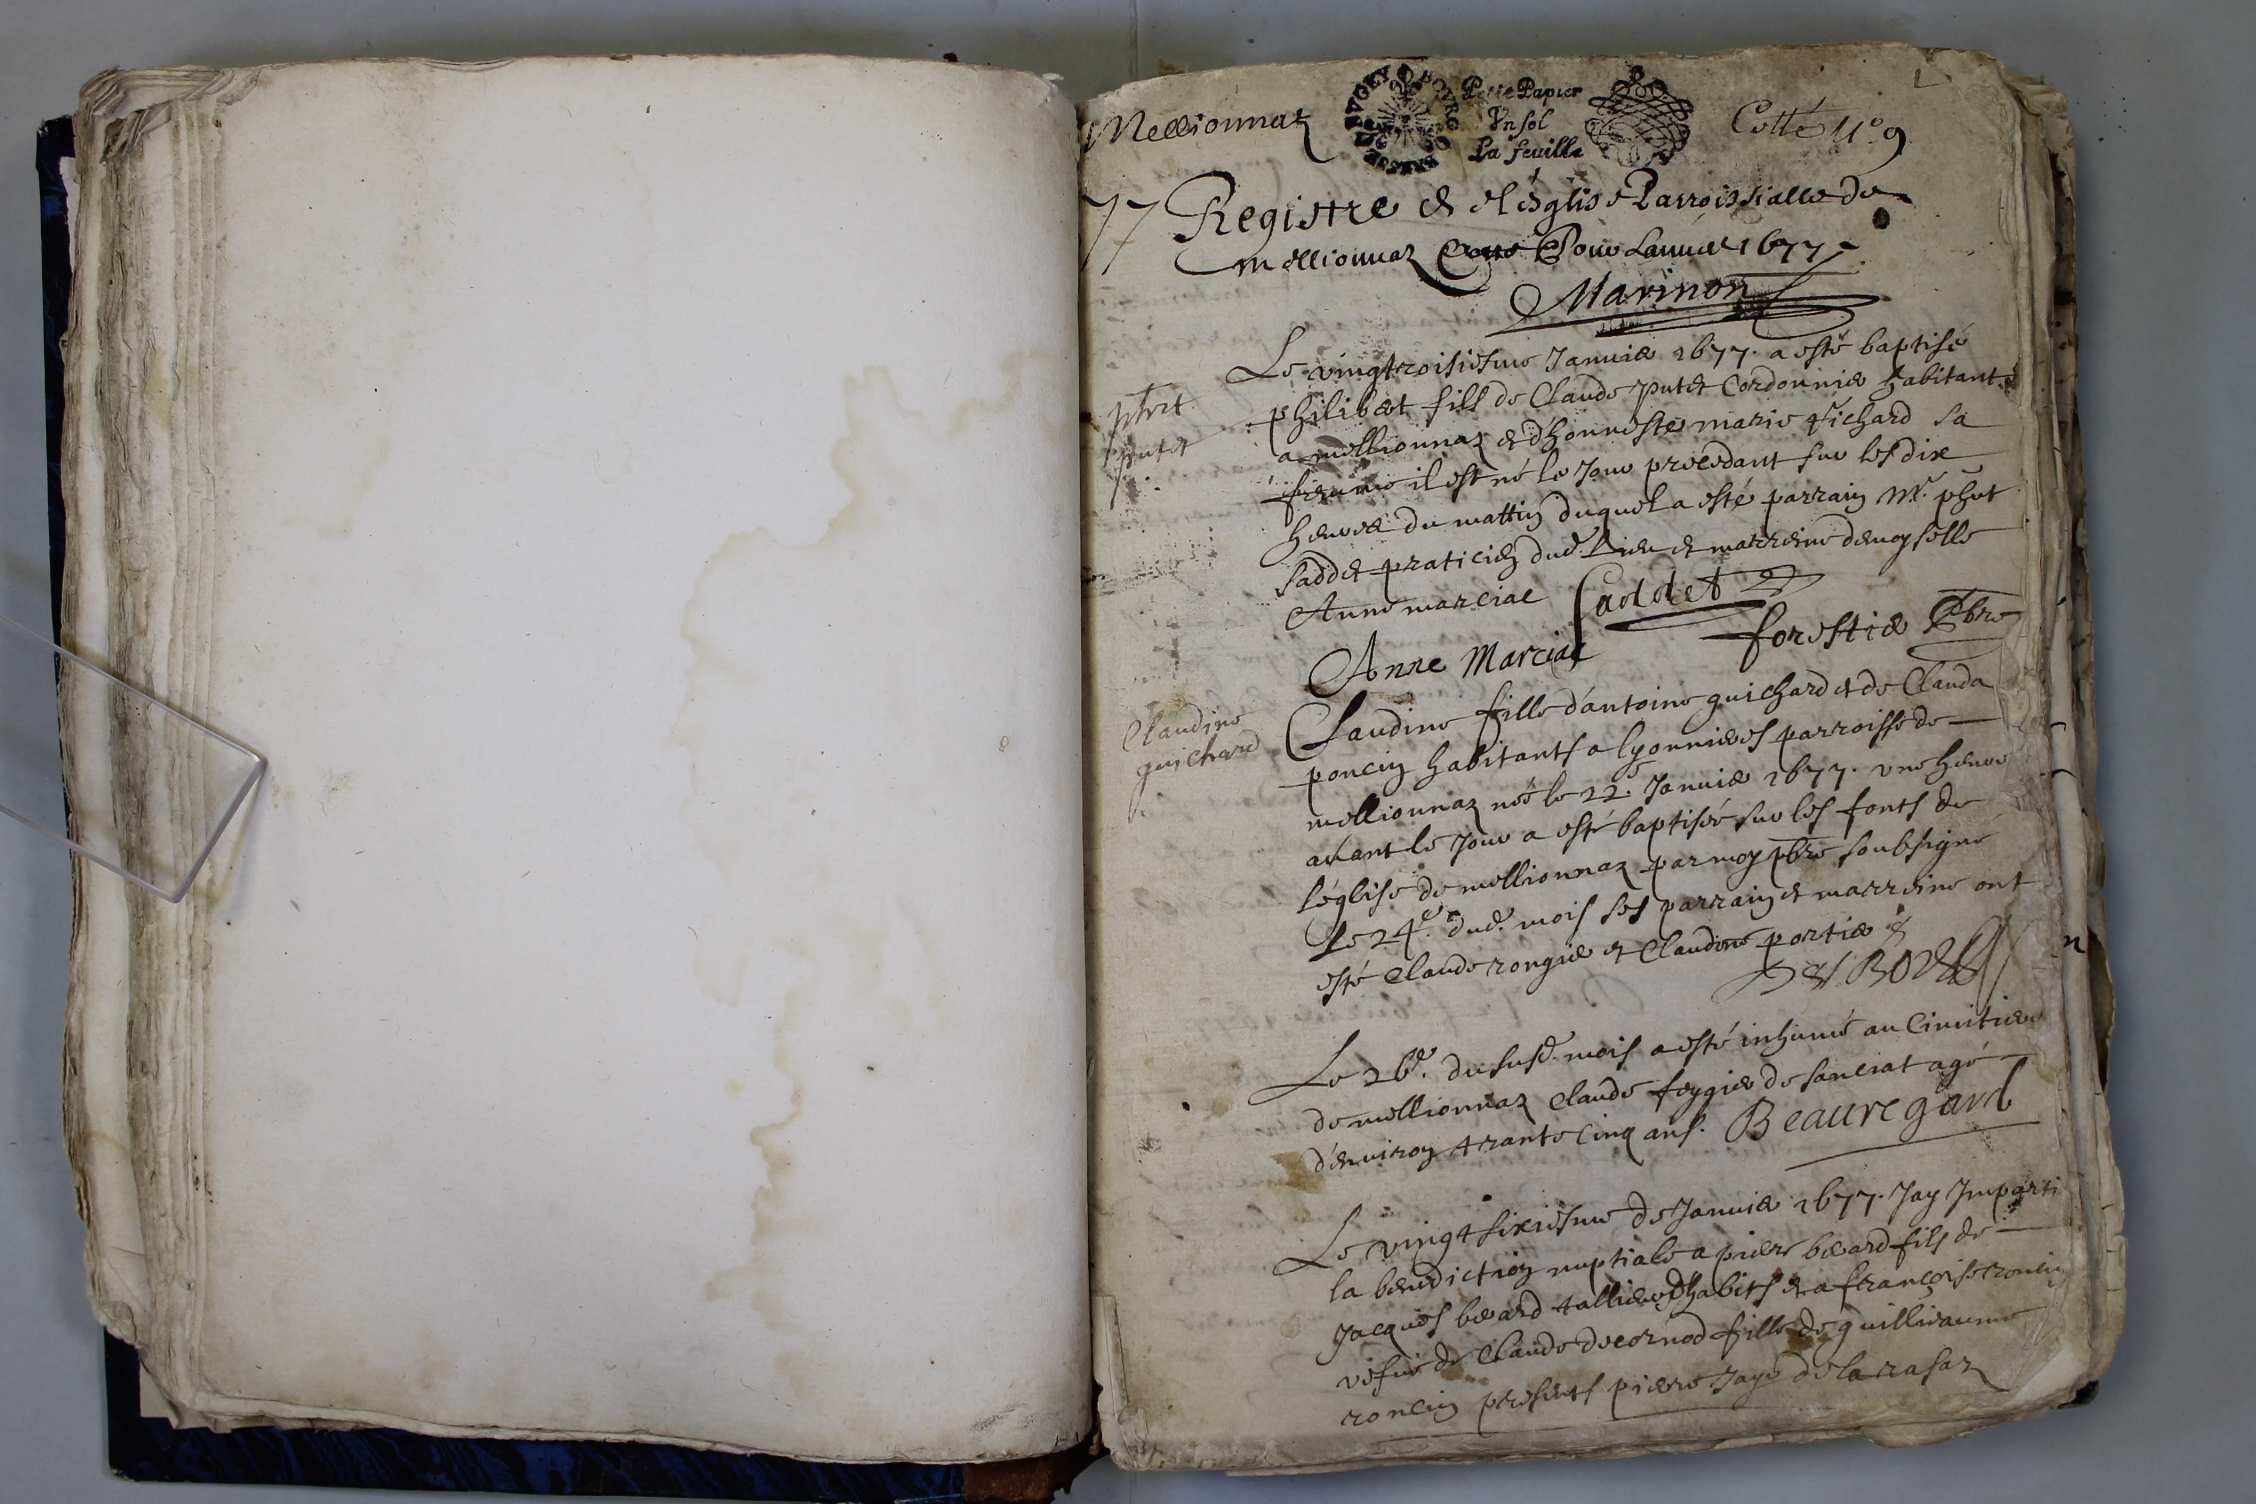 Mellionnaz
BVGEY BOVRG
BRESSE
Petit Papier
Vn sol
La feuille
Cotté N° 9
77 Registre de l'église Parroissialle de
mellionnaz Pour Lannée 1677
Marinon
Le vingtroisiesme Januier 1677. a esté baptisé
philibert fils de Claude putet Cordonnier habitant
a mellionnaz et d'honneste marie richard sa
femme il est né le Jour précédant sur les dix
heures du mattin duquel a esté parrain Mr. phbt
saddet praticien dud. Lieu et marreine demoyselle
Anne marciat
Saddet
Anne Marciat
forestier Pbre
phrt
putet
Claudine fille d'antoine guichard et de Clauda
poncin habitants a lyonnieres parroisse de
mellionnaz née le 22e. Januier 1677. vne heure
auant le Jour a esté baptisée sur les fonts de
l'église de mellionnaz par moy pbre soubsigné
Le 24e. dud. mois ses parrain et marreine ont
esté Claude rongier et Claudine portier
Claudine
guichard
Le 26e. du susd. mois a esté inhumé au Cimitiere
de mellionnaz Claude feygier de sanciat agé
d'enuiron trante cinq ans. Beauregard
Le vingt sixiesme de Januier 1677. Jay Imparti
la benediction nuptiale a pierre berard fils de
Jacques berard tallieur d'habits et a françoise roncin
vefue de Claude decornod fille de guilliaume
roncin presents pierre Jayé de la rasaz